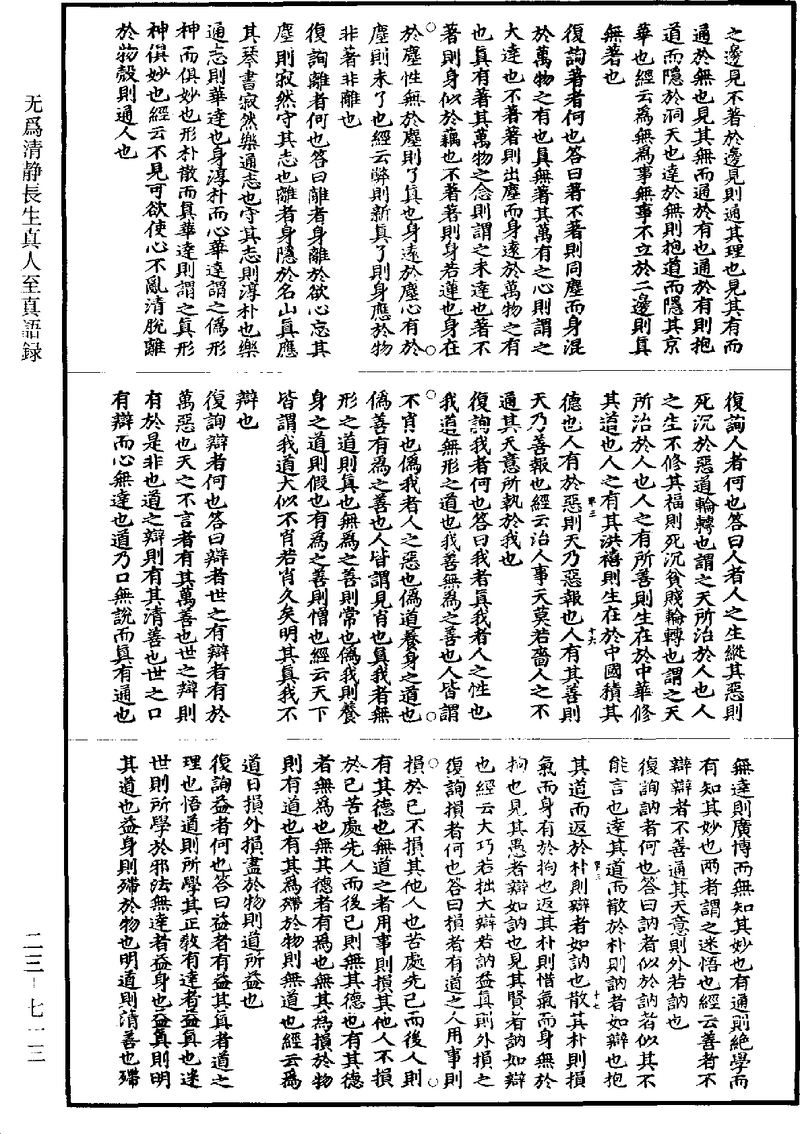 之邊見不著於邊見則通其理也見其有而
通於無也見其無而通於有也通於有則抱
道而隱於洞天也達於無則抱道而隱其京
華也經云為無為事無事不立於二邊則真
無著也
復詢著者何也答曰著不著則同塵而身混
於萬物之有也真無著其萬有之心則謂之
大達也不著著則出塵而身遠於萬物之有
也真有著其萬物之念則謂之未達也著不
著則身似於藕也不著著則身若蓮也身在
於塵性無於塵則了真也身遠於塵心有於
塵則未了也經云弊則新真了則身應於物
非著非離也
復詢離者何也答曰離者身離於欲心忘其
塵則寂然守其志也離者身隱於名山真應
其琴書寂然樂通志也守其志則淳朴也樂
通志則華達也身淳朴而心華達謂之偽形
神而俱妙也形朴散而真華達則謂之真形
神俱妙也經云不見可欲使心不亂清脫離
於物殼則通人也
復詢人者何也答曰人者人之生縱其惡則
死沉於惡道輪轉也謂之天所治於人也人
之生不修其福則死沉貧賤輪轉也謂之天
所治於人也人之有所善則生在於中華修
其道也人之有其洪禧則生在於中國積其
德也人有於惡則天乃惡報也人有其善則
天乃善報也經云治人事天莫若嗇人之不
通其天意所執於我也
復詢我者何也答曰我者真我者人之性也
我道無形之道也我善無為之善也人皆謂
不肖也偽我者人之惡也偽道養身之道也
偽善有為之善也人皆謂見肖也真我者無
形之道則真也無為之善則常也偽我則養
身之道則假也有為之善則憎也經云天下
皆謂我道大似不肖若肖久矣明其真我不
辯也
復詢辯者何也答曰辯者世之有辯者有於
萬惡也天之不言者有其萬善也世之辯則
有於是非也道之辯則有其清善也世之口
有辯而心無達也道乃口無說而真有通也
無達則廣博而無知其妙也有通則絕學而
有知其妙也兩者謂之迷悟也經云善者不
辯辯者不善通其天意則外若訥也
復詢訥者何也答曰訥者似於訥者似其不
能言也達其道而散於朴則訥者如辯也抱
其道而返於朴則辯者如訥也散其朴則損
氣而身有於拘也返其朴則惜氣而身無於
拘也見其愚者辯如訥也見其賢者訥如辯
也經云大巧若拙大辯若訥益真則外損之
復詢損者何也答曰損者有道之人用事則
損於己不損其他人也苦處先己而後人則
有其德也無道之者用事則損其他人不損
於己苦處先人而後己則無其德也有其德
者無為也無其德者有為也無其為損於物
則有道也有其為殢於物則無道也經云為
道日損外損盡於物則道所益也
復詢益者何也答曰益者有益其真者道之
理也悟道則所學其正教有達者益真也迷
世則所學於邪法無達者益身也益真則明
其道也益身則殢於物也明道則清善也殢
第三
十六
第三
十七
无爲清靜長生真人至真語録
二三－七一三